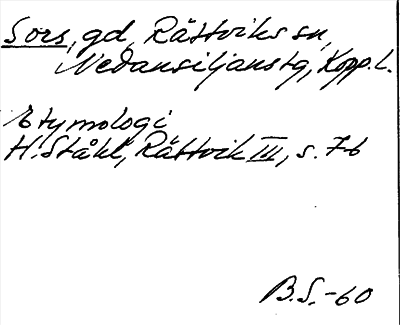 Sors, gd, Rättviks sn,
Nedansiljans tg, Kopp. l.
Etymologi
H. Ståhl, Rättvik III, s. 76
B.S. -60